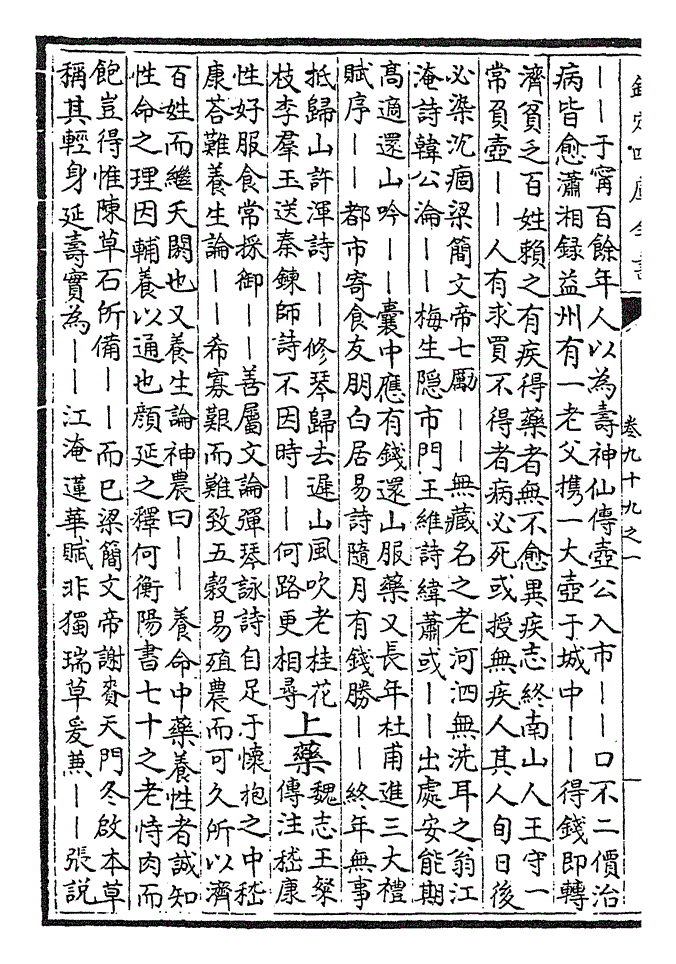 欽定四庫全書
卷九十九之一
——于寗百餘年人以為壽神仙傳壺公入市——口不二價治
病皆愈瀟湘録益州有一老父攜一大壺于城中——得錢即轉
濟貧乏百姓賴之有疾得藥者無不愈異疾志終南山人王守一
常負壺——人有求買不得者病必死或授無疾人其人旬日後
必染沉痼梁簡文帝七勵——無藏名之老河泗無洗耳之翁江
淹詩韓公淪——梅生隱市門王維詩緯蕭或——出處安能期
高適還山吟——囊中應有錢還山服藥又長年杜甫進三大禮
賦序——都市寄食友朋白居易詩隨月有錢勝——終年無事
抵歸山許渾詩——修琴歸去遲山風吹老桂花
枝李羣玉送秦鍊師詩不因時——何路更相尋
上藥
魏志王粲
傳注嵇康
性好服食常採御——善屬文論彈琴詠詩自足于懷抱之中嵇
康荅難養生論——希寡艱而難致五穀易殖農而可久所以濟
百姓而繼天閼也又養生論神農曰——養命中藥養性者誠知
性命之理因輔養以通也顔延之釋何衡陽書七十之老恃肉而
飽豈得惟陳草石所備——而已梁簡文帝謝賚天門冬啟本草
稱其輕身延壽實為——江淹蓮華賦非獨瑞草爰兼——張説